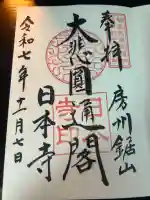 奉拝
房州鋸山
大悲圓通閣
日本寺
令和七年十一月七日